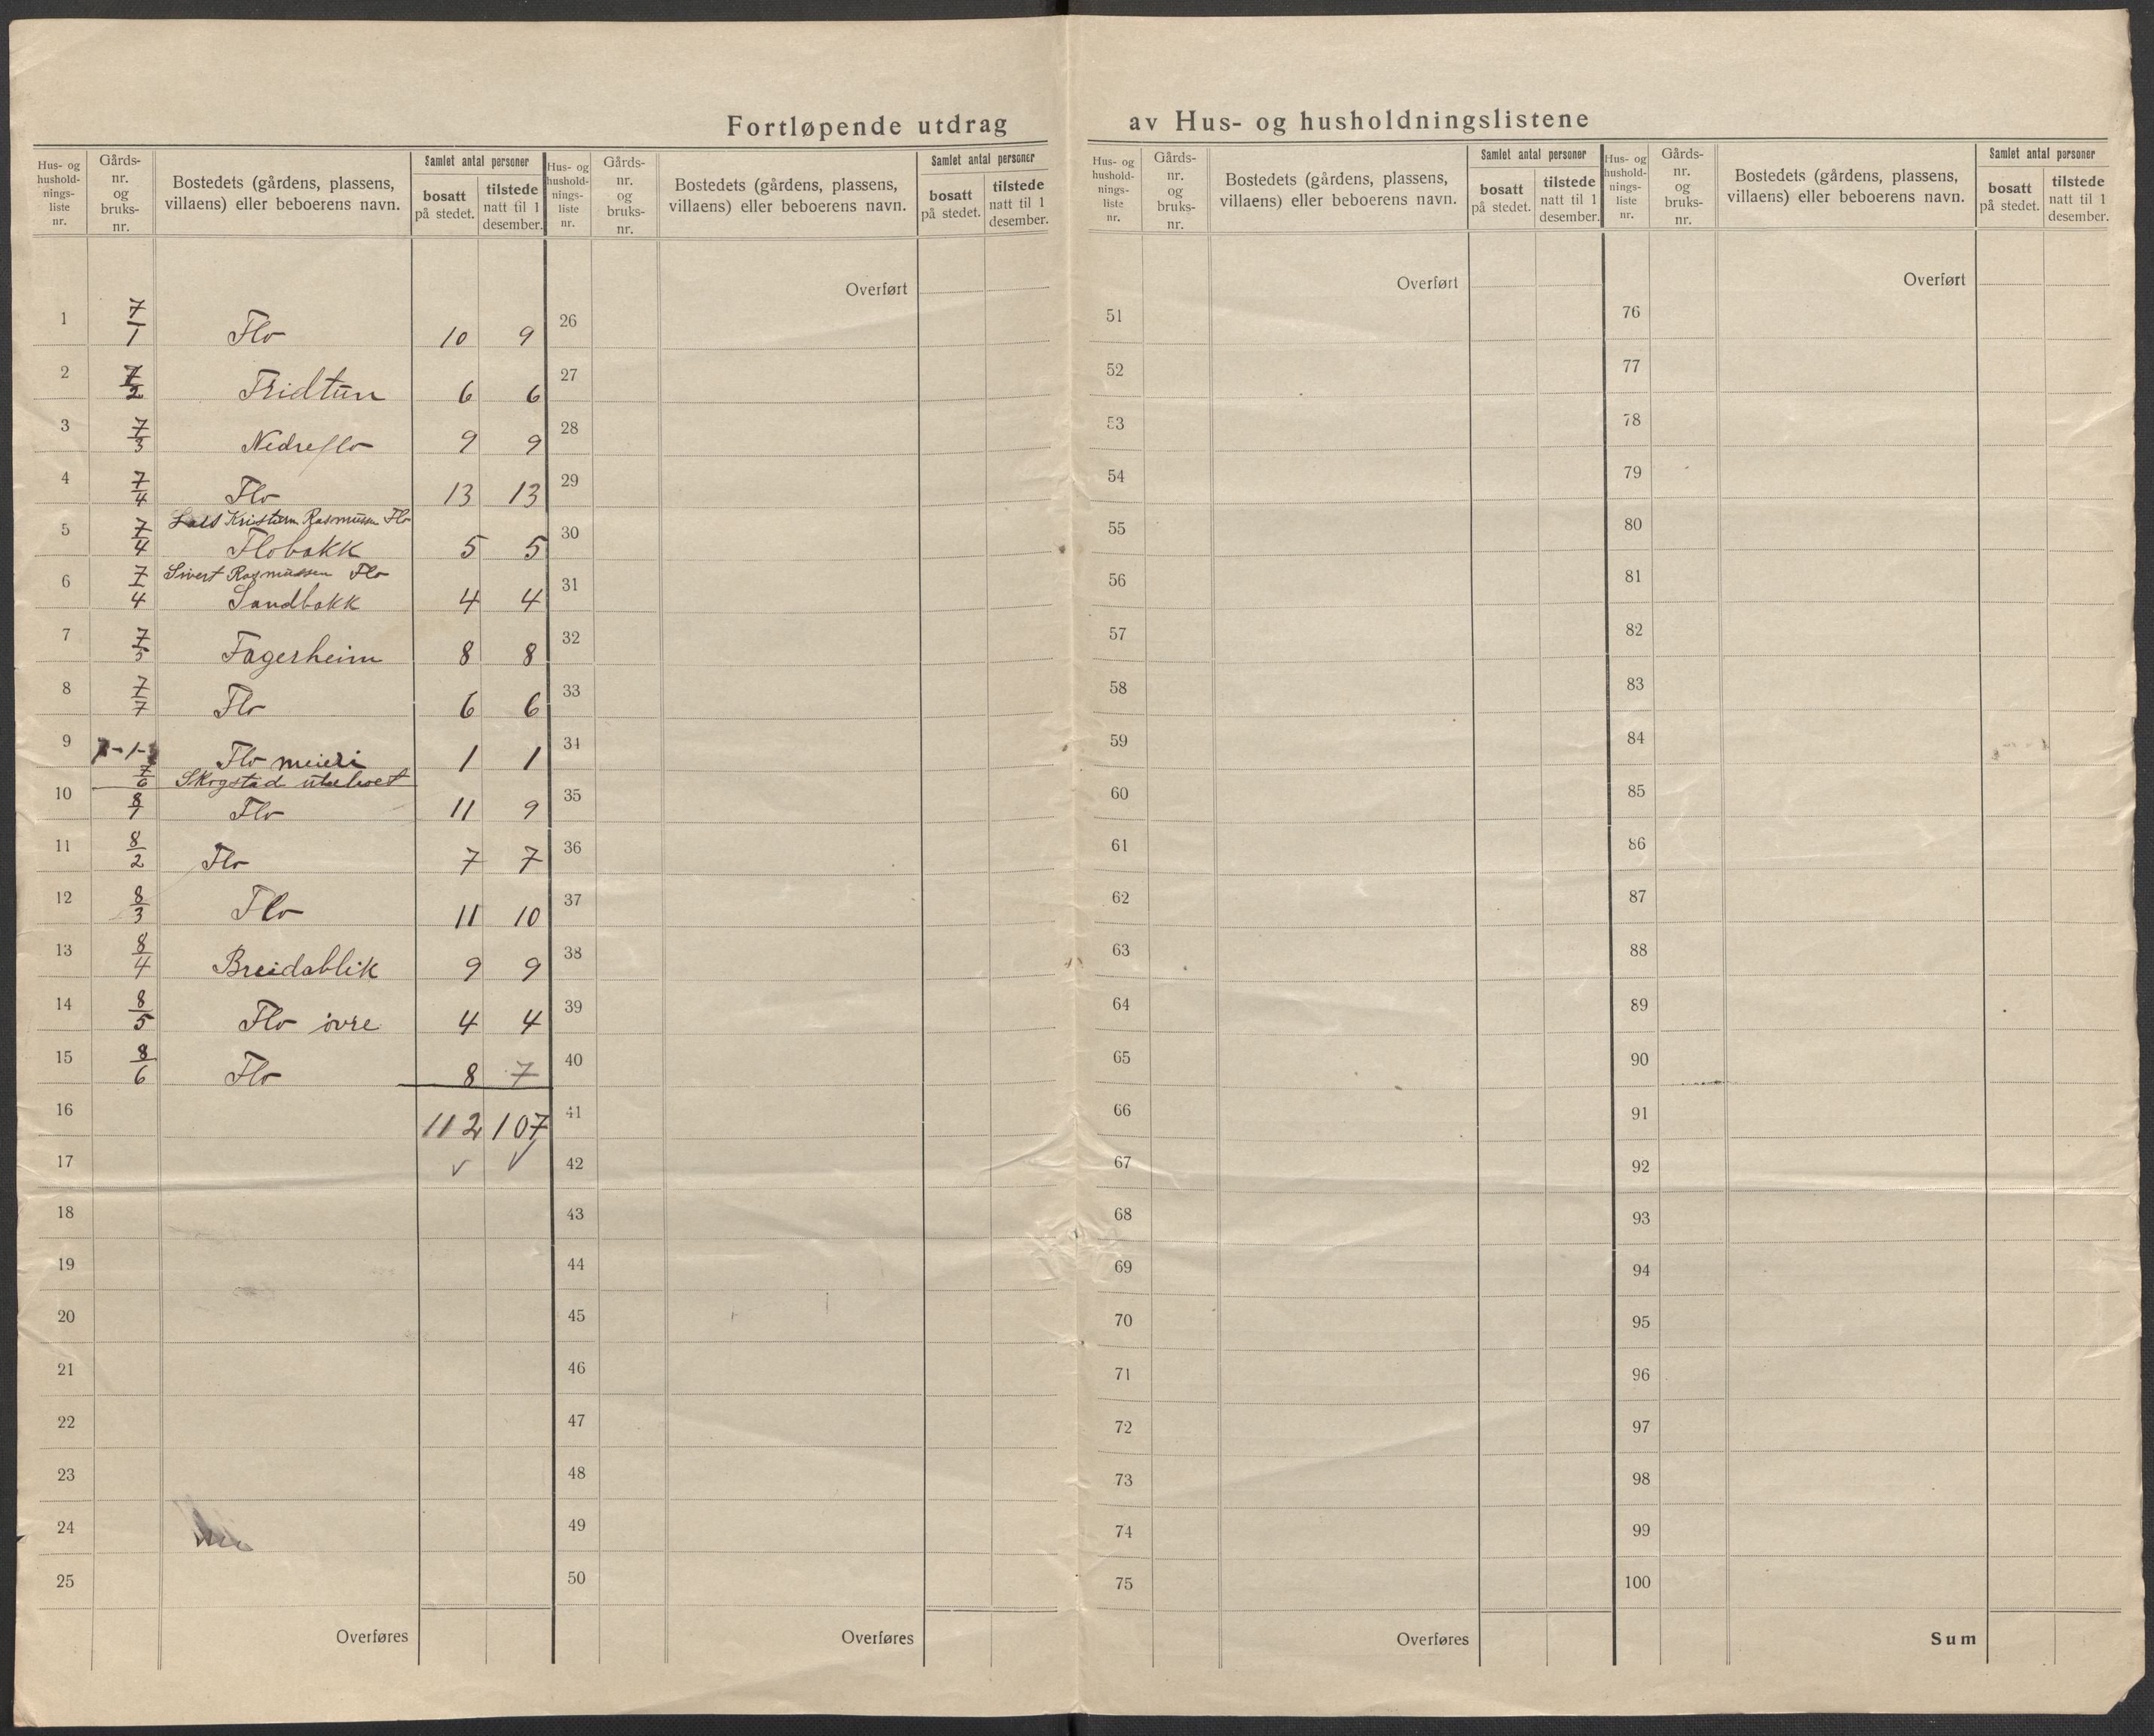 Fortløpende utdrag av Hus- og husholdningslistene
Hus- og husholdnings-liste nr. | Gårds-nr. og bruks-nr. | Bostedets (gårdens, plassens, villaens) eller beboerens navn. | Samlet antal personer | bosatt på stedet. | tilstede natt til 1 desember.
1 7/1 Flo 10 9
2 7/2 Fridtun 6 6
3 7/3 Nedreflo 9 9
4 7/4 Flo 13 13
Lars Kristian Rasmussen Flo
5 7/4 Flobakk 5 5
Sivert Rasmussen Flo
6 7/4 Sandbakk 4 4
7 7/5 Fagerheim 8 8
8 7/7 Flo 6 6
9 Flo meieri 1 1
7/6 Skogstad
10 8/1 Flo 11 9
11 8/2 Flo 7 7
12 8/3 Flo 11 10
13 8/4 Breidablik 9 9
14 8/5 Flo övre 4 4
15 8/6 Flo 8 7
16 112 107
17 ✓ ✓
18
19
20
21
22
23
24
25
Overføres
Hus- og husholdnings-liste nr. | Gårds-nr. og bruks-nr. | Bostedets (gårdens, plassens, villaens) eller beboerens navn. | Samlet antal personer | bosatt på stedet. | tilstede natt til 1 desember.
Overført
26
27
28
29
30
31
32
33
34
35
36
37
38
39
40
41
42
43
44
45
46
47
48
49
50
Overføres
Hus- og husholdnings-liste nr. | Gårds-nr. og bruks-nr. | Bostedets (gårdens, plassens, villaens) eller beboerens navn. | Samlet antal personer | bosatt på stedet. | tilstede natt til 1 desember.
Overført
51
52
53
54
55
56
57
58
59
60
61
62
63
64
65
66
67
68
69
70
71
72
73
74
75
Overføres
Hus- og husholdnings-liste nr. | Gårds-nr. og bruks-nr. | Bostedets (gårdens, plassens, villaens) eller beboerens navn. | Samlet antal personer | bosatt på stedet. | tilstede natt til 1 desember.
Overført
76
77
78
79
80
81
82
83
84
85
86
87
88
89
90
91
92
93
94
95
96
97
98
99
100
Sum